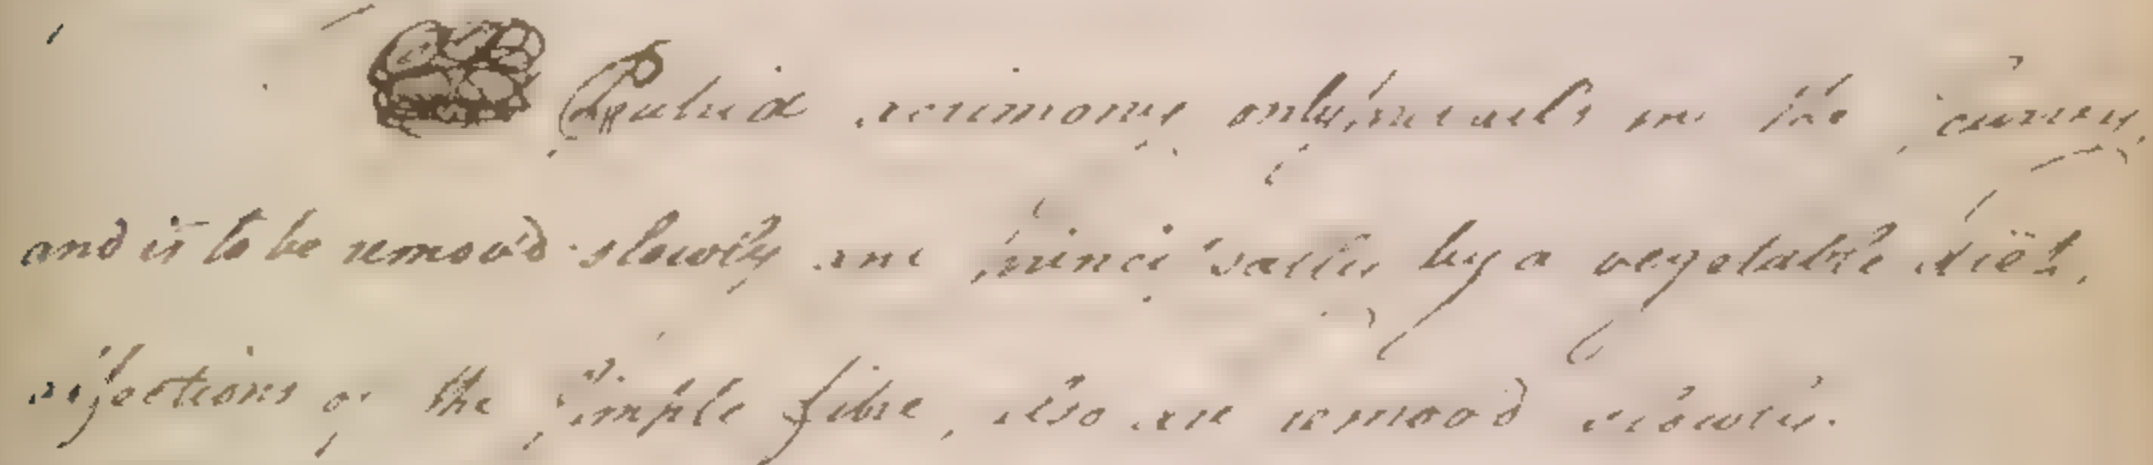 Putrid acrimony only prevails in the scurvy,
and is to be remov'd slowly and principally by a vegetable diët.
affections of the simple fibre, also are remoov'd slowly.